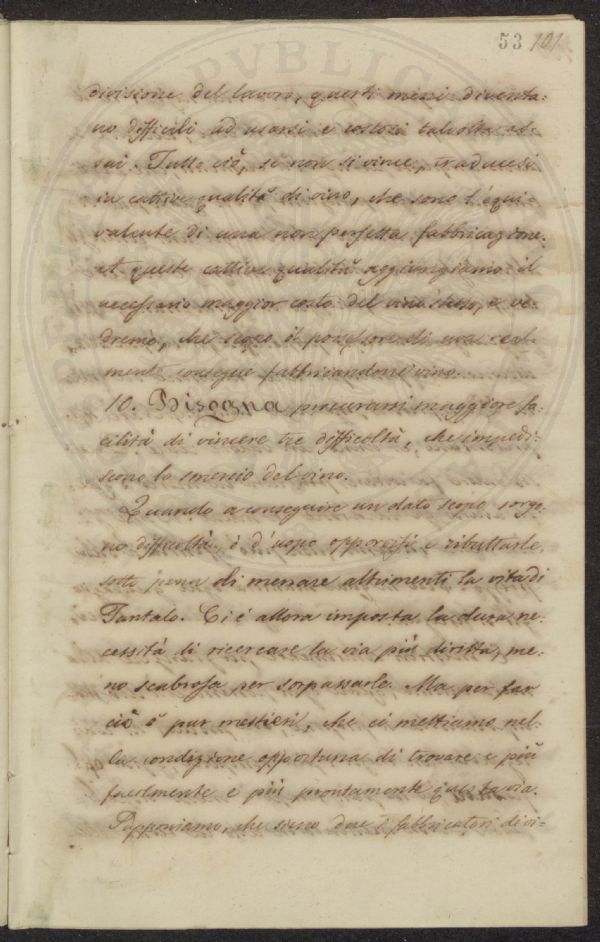 53 101
divisione del lavoro, questi mezzi diventa-
no difficili ad usarsi e costosi talvolta as-
sai. Tutto ciò, se non si vince, traducesi
in cattiva qualità di vino, che sono l'equi-
valente di una non perfetta fabbricazione.
A queste cattive qualità aggiungiamo il
necessario maggior costo del vino stesso, e ve-
dremo, che scopo il possessore di uva real-
mente consegue fabbricandone vino.
10. Bisogna procurarsi maggiore fa-
cilità di vincere tre difficoltà, che impedi-
scono lo smercio del vino.
Quando a conseguire un dato scopo sorgo-
no difficoltà, è d'uopo opporsi e ributtarle,
sotto pena di menare altrimenti la vita di
Tantalo. Ci è allora imposta la dura ne-
cessità di ricercare la via più diritta, me-
no scabrosa per sorpassarle. Ma per far
ciò è pur mestieri, che ci mettiamo nel-
la condizione opportuna di trovare e più
facilmente e più prontamente questa via.
Supponiamo, che sieno due i fabbricatori di vi-
PVBLIC